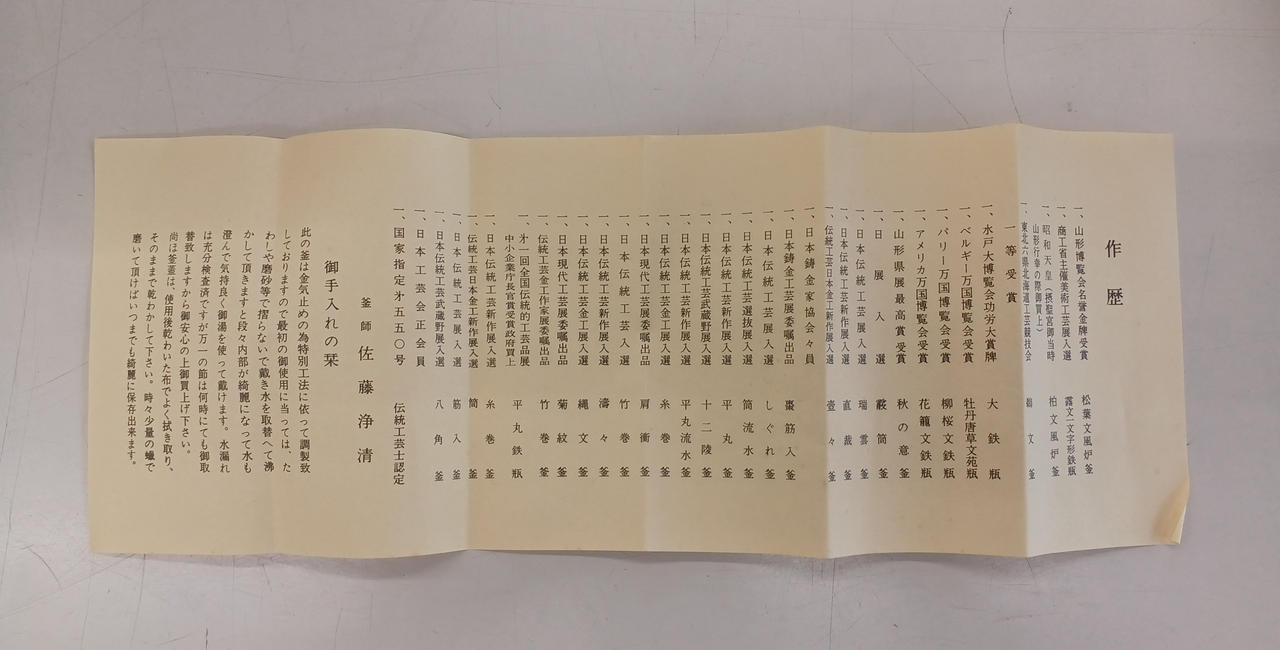 作歴
一、山形博覧会名誉金牌受賞 松葉文風炉釜
一、商工省主催美術工芸展入選 露文一文字形鉄瓶
一、昭和天皇摂聖宮御当時 柏文風炉釜
山形行幸の際御買上）
一、東北六県北海道工芸競技会 文釜
一等受賞
一、水戸大博覧会功労大賞牌 大鉄瓶
一、ベルギー万国博覧会受賞 牡丹唐草文苑瓶
一、パリー万国博覧会受賞 柳桜文鉄瓶
一、アメリカ万国博覧会受賞 花籠文鉄瓶
一、山形県展最高賞受賞 秋の意釜
一、日展入選 霰筒釜
一、日本伝統工芸展入選 瑞雲釜
一、日本伝統工芸新作展入選 直裁釜
一、伝統工芸日本金工新作展入選 壹々釜
一、日本鋳金家協会々員
一、日本鋳金工芸展委嘱出品 棗筋入釜
一、日本伝統工芸展入選 しぐれ釜
一、日本伝統工芸選抜展入選 筒流水釜
一、日本伝統工芸武蔵野展入選 平丸釜
一、日本伝統工芸新作展入選 十二陵釜
一、日本伝統工芸新作展入選 平丸流水釜
一、日本伝統金工芸展入選 糸巻釜
一、日本現代工芸展委嘱出品 肩衝釜
一、日本伝統工芸入選 竹巻釜
一、日本伝統工芸新作展入選 濤々釜
一、日本伝統工芸金工展入選 縄文釜
一、日本現代工芸展委嘱出品 菊紋釜
一、伝統工芸金工作家展委嘱出品 竹巻釜
一、㐧一回全国伝統的工芸品展 平丸鉄瓶
中小企業庁長官賞受賞政府買上
一、日本伝統工芸新作展入選 糸巻釜
一、伝統工芸日本金工新作展入選 筒釜
一、日本伝統工芸展入選 筋入釜
一、日本伝統工芸武蔵野展入選 八角釜
一、日本工芸会正会員
一、国家指定㐧五五〇号 伝統工芸士認定
釜師 佐藤浄清
御手入れの栞
此の釜は金気止めの為特別工法に依って調製致
しておりますので最初の御使用に当っては、た
わしや磨砂等で摺らないで戴き水を取替へて沸
かして頂きますと段々内部が綺麗になって水も
澄んで気持良く御湯を使って戴けます。水漏れ
は充分検査済ですが万一の節は何時にても御取
替致しますから御安心の上御買上げ下さい。
尚は釜蓋は、使用後乾わいた布でよく拭き取り、
そのままで乾わかして下さい。時々少量の蠟で
磨いて頂けばいつまでも綺麗に保存出来ます。